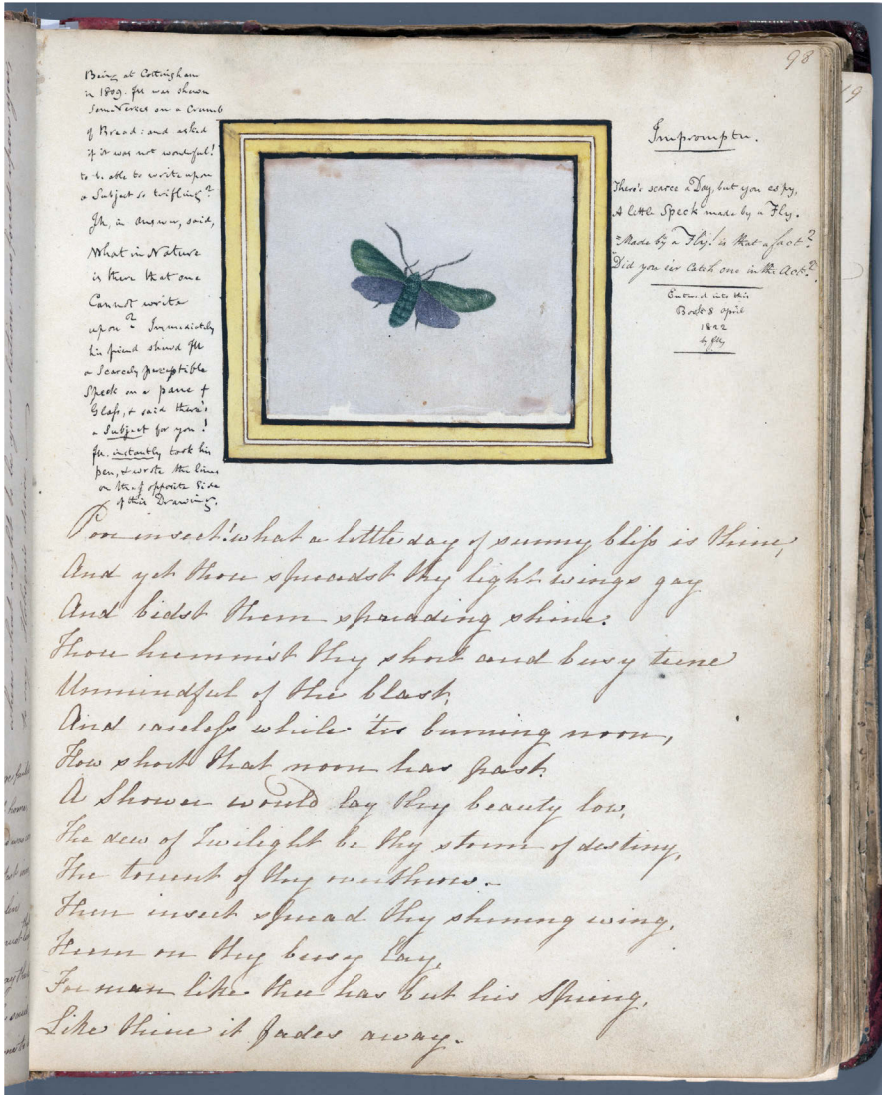 98
Being at Cottingham
in 1809. JH was shewn
some Verses on a Crumb
of Bread: and asked
if it was not wonderful!
to be able to write upon
a Subject so trifling?
JH, in answer, said,
What in Nature
is there that one
Cannot write
upon? Immediately
his friend shewd JH
a Scarcely perceptible
Speck on a pane of
Glass, & said there's
a Subject for you!
JH. instantly took his
pen, & wrote the lines
on the opposite Side
of this Drawing.
Impromptu.
There's scarce a Day, but you espy,
A little Speck made by a Fly.
"Made by a Fly! is that a fact?
"Did you e'er Catch one in the Act?"
Entered into this
Book 8 April
1822
by
Poor insect! what a little day of sunny bliss is thine,
And yet thou spreadst thy light wings gay
And bidst them spreading shine.
Thou hummist thy short and busy tune
Unmindful of the blast,
And careless while 'tis burning noon,
How short that noon has past.
A Shower would lay thy beauty low,
The dew of Twilight be thy storm of destiny,
The torrent of thy overthrow.
Then insect spread thy shining wing,
Hum on thy busy lay,
For man like thee has but his Spring,
Like thine it fades away.
19